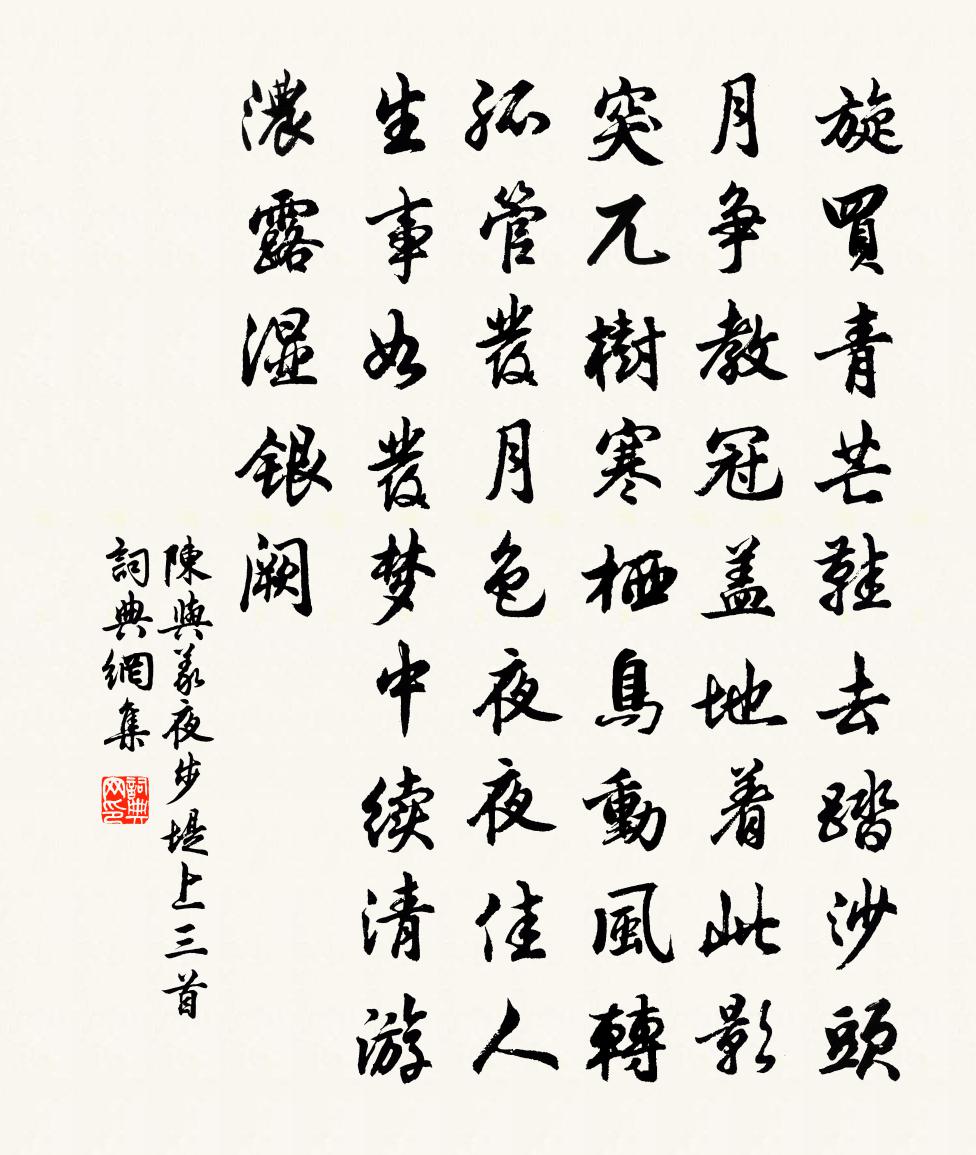 旋買青芒鞋去踏沙頭
月争教冠盖地着此影
突兀樹寒栖鳥動風轉
孤管發月色夜夜佳人
生事如發梦中续清游
濃露湿銀阙
陳與義夜步堤上三首
詞典網集
詞典网印